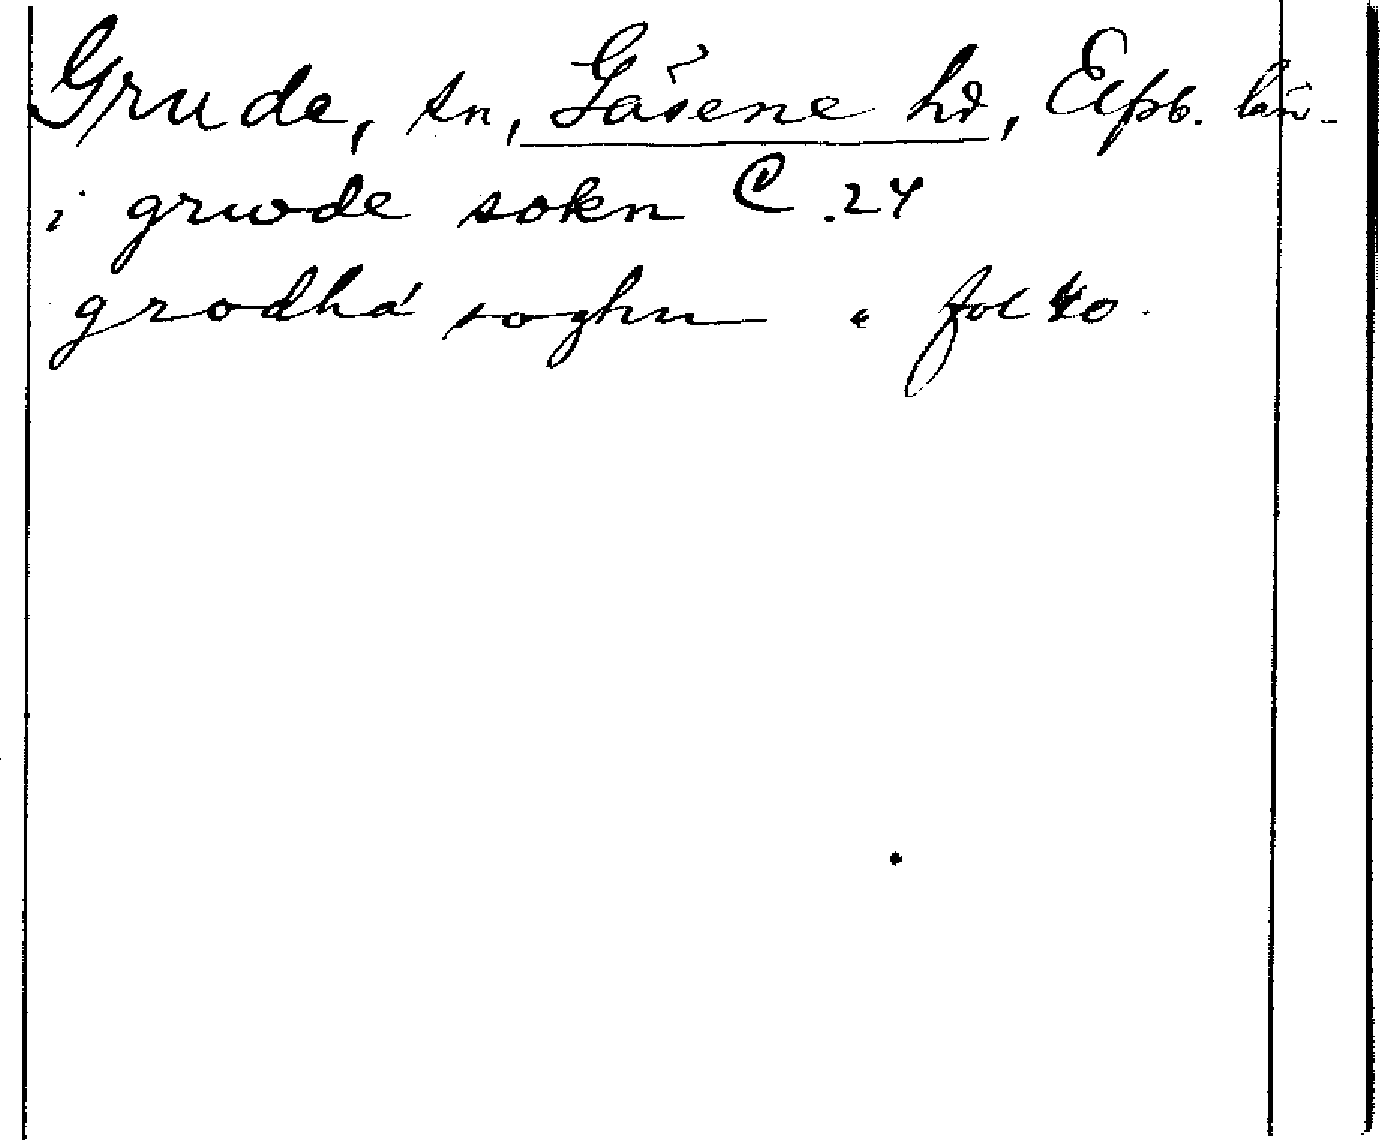 Grude, sn, Gäsene hd, Elfsb. län.
i grwde sokn C. 24
grodha soghn " fol 40.